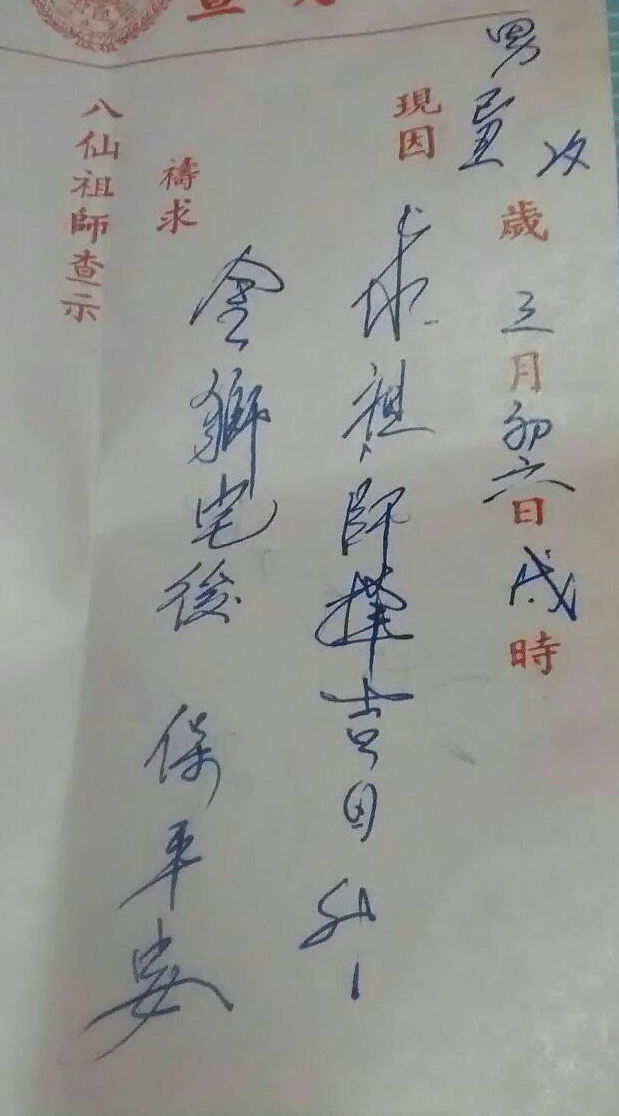 男 歲 三月初六日戌時
現因 求祖師擇吉日
禱求 金獅宅後 保平安
八仙祖師查示